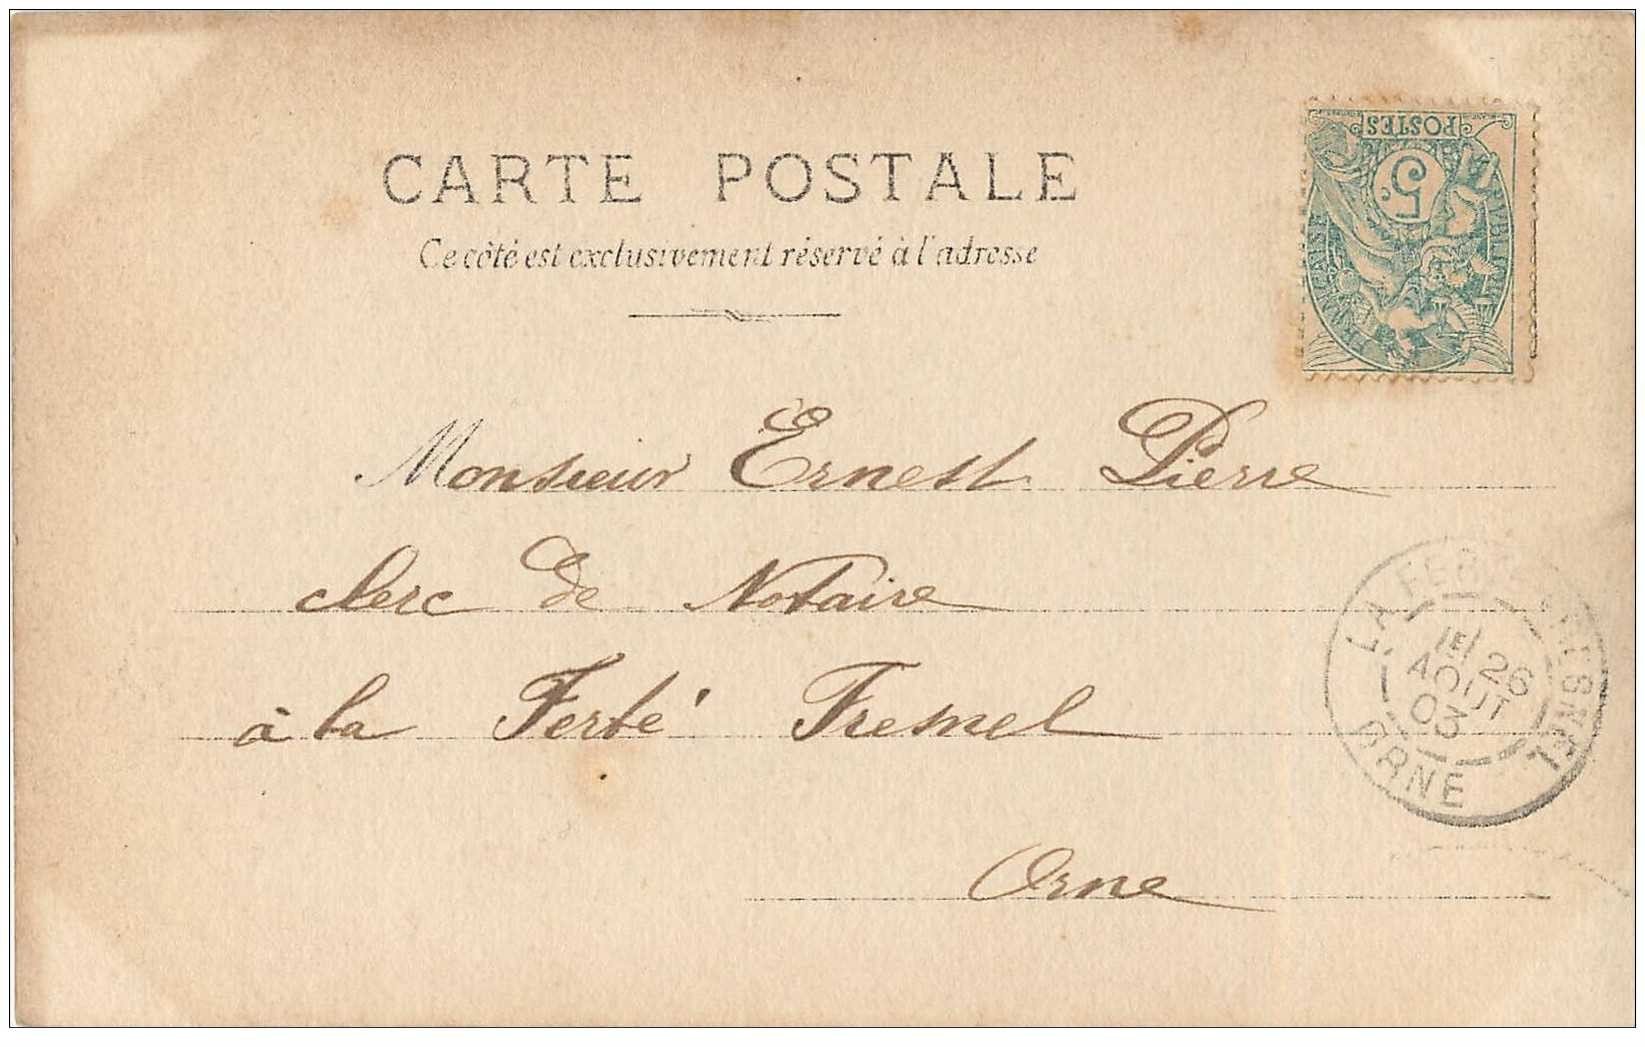 CARTE POSTALE
Ce côté est exclusivement réservé à l'adresse
POSTES
5c
Monsieur Ernest Pierre
clerc de Notaire
à la Ferté Fresnel
Orne
LA FERTÉ-FRESNEL
1E/ 26
AOUT
03
ORNE